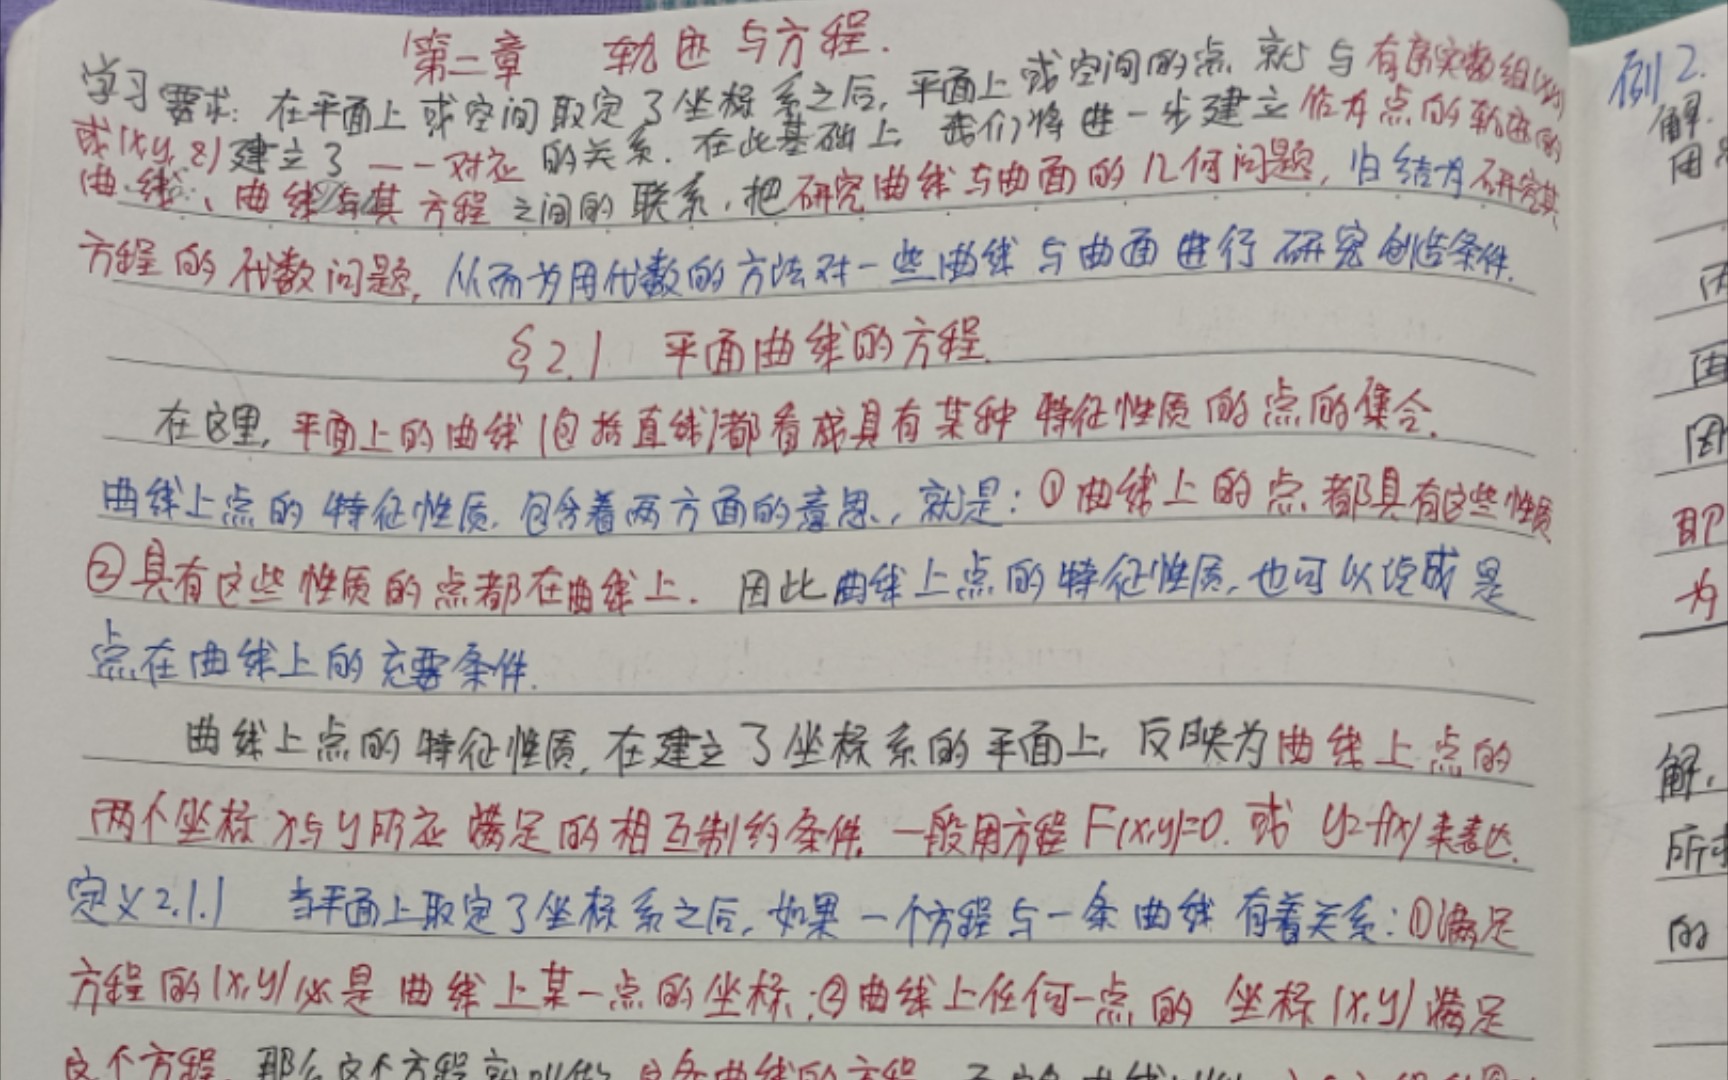 第二章 轨迹与方程.
学习要求: 在平面上或空间取定了坐标系之后, 平面上或空间的点就与有序实数组(x,y)
或(x,y,z)建立了一一对应的关系. 在此基础上, 我们将进一步建立作为点的轨迹的
曲线、曲线与其方程之间的联系, 把研究曲线与曲面的几何问题, 归结为研究其
方程的代数问题, 从而为用代数的方法对一些曲线与曲面进行研究创造条件.
§2.1 平面曲线的方程.
在这里, 平面上的曲线(包括直线)都看成具有某种特征性质的点的集合.
曲线上点的特征性质, 包含着两方面的意思, 就是: ①曲线上的点都具有这些性质
②具有这些性质的点都在曲线上. 因此曲线上点的特征性质, 也可以说成是
点在曲线上的充要条件.
曲线上点的特征性质, 在建立了坐标系的平面上, 反映为曲线上点的
两个坐标x与y所应满足的相互制约条件, 一般用方程F(x,y)=0. 或 y=f(x)来表达.
定义2.1.1 当平面上取定了坐标系之后, 如果一个方程与一条曲线有着关系: ①满足
方程的(x,y)必是曲线上某一点的坐标; ②曲线上任何一点的坐标(x,y)满足
这个方程, 那么这个方程就叫做这条曲线的方程
例2.
解.
用
两
因
因
即
为
解.
所
的